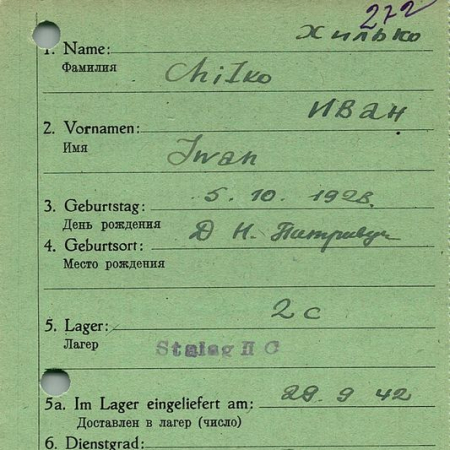 272
Хилько
1. Name:
Фамилия
Chilko
Иван
2. Vornamen:
Имя
Iwan
3. Geburtstag: 5. 10. 1928.
День рождения
4. Geburtsort: Д Н.
Место рождения
2 c
5. Lager:
Лагер
Stalag II C
5a. Im Lager eingeliefert am: 29. 9 42
Доставлен в лагер (число)
6. Dienstgrad: